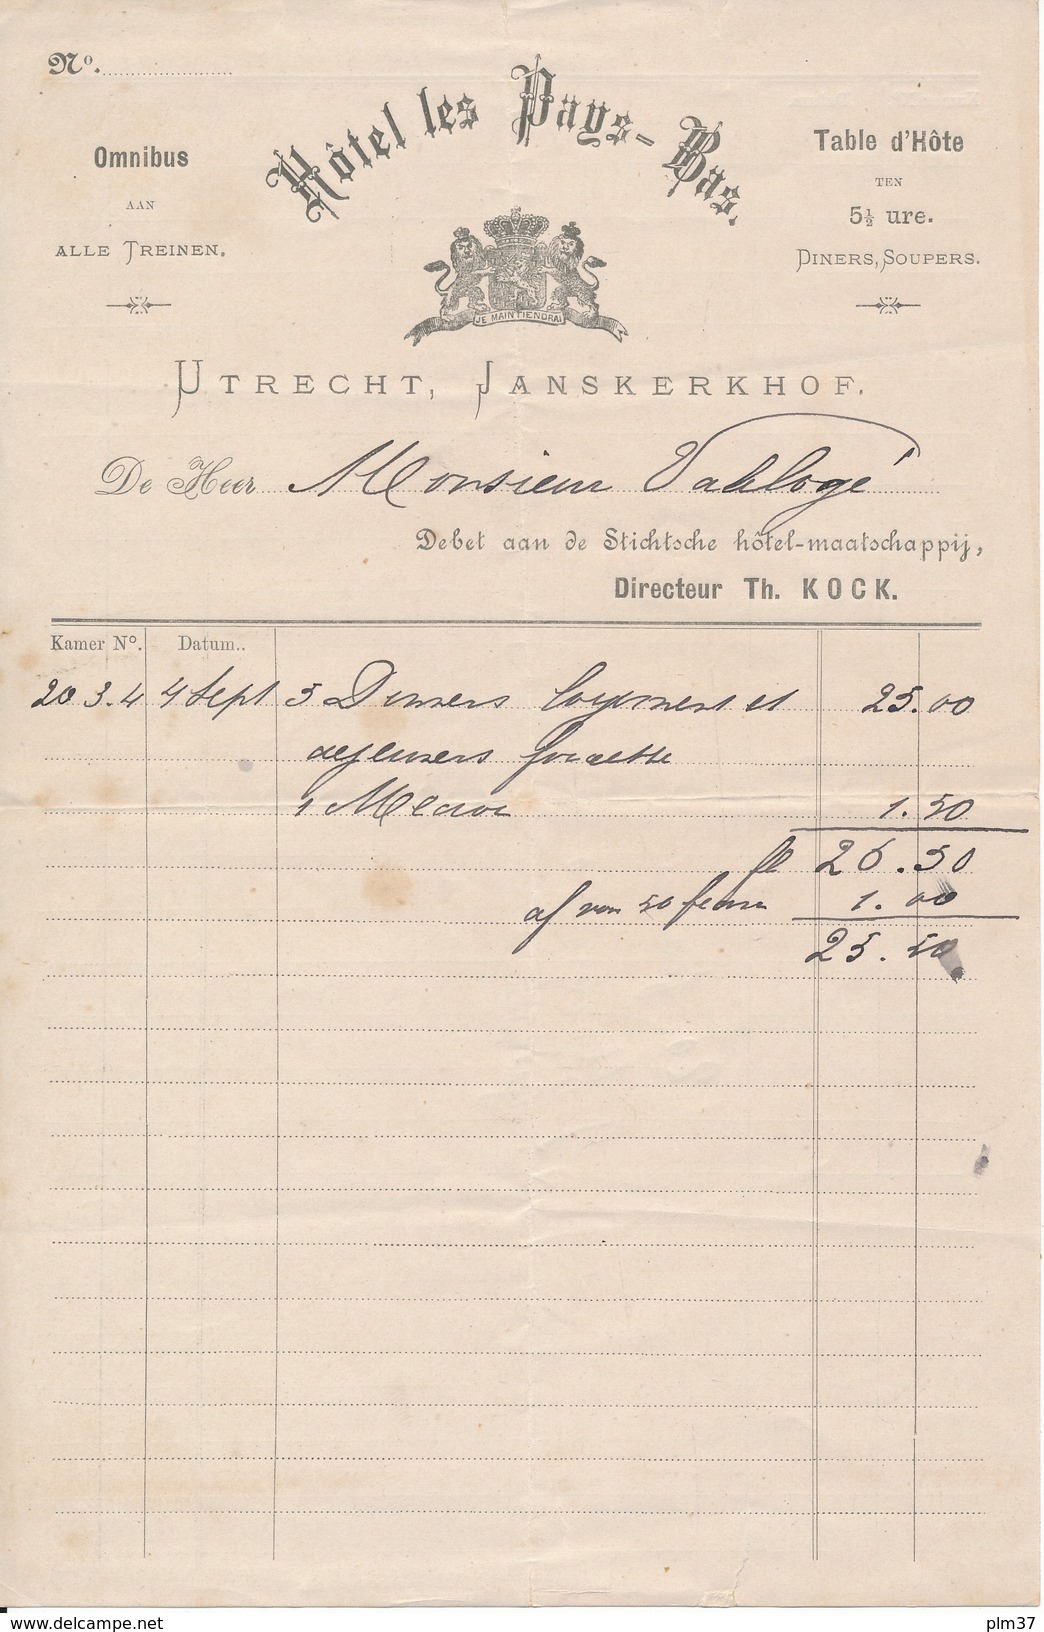 Nº.
Hôtel les Pays-Bas.
Omnibus
AAN
ALLE TREINEN.
Table d'Hôte
TEN
5½ ure.
DINERS, SOUPERS.
JE MAINTIENDRAI
UTRECHT, JANSKERKHOF.
De Heer Monsieur Vahlogé
Debet aan de Stichtsche hôtel-maatschappij,
Directeur Th. KOCK.
Kamer Nº. Datum..
20 3.4 4 Sept 5 Diners logement et 25.00
dejeuners
1 Medoc 1.50
fl 26.50
af van 50 1.00
25.50
www.delcampe.net plm37